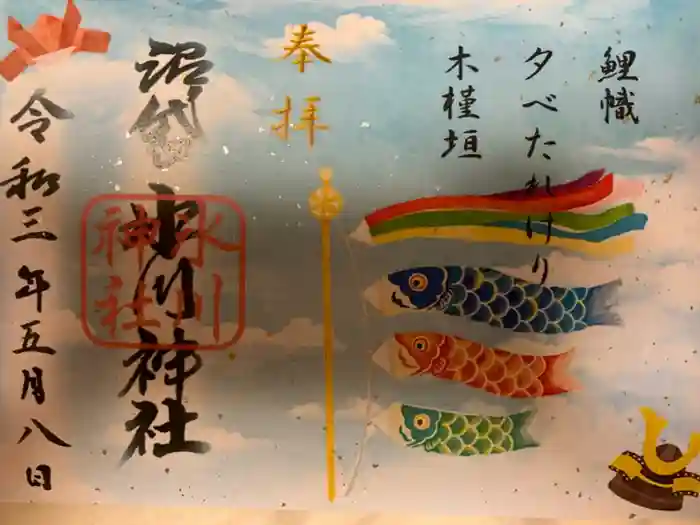 鯉幟
夕べたれけり
木槿垣
奉拝
沼袋
氷川神社
氷川
神社
令和三年五月八日